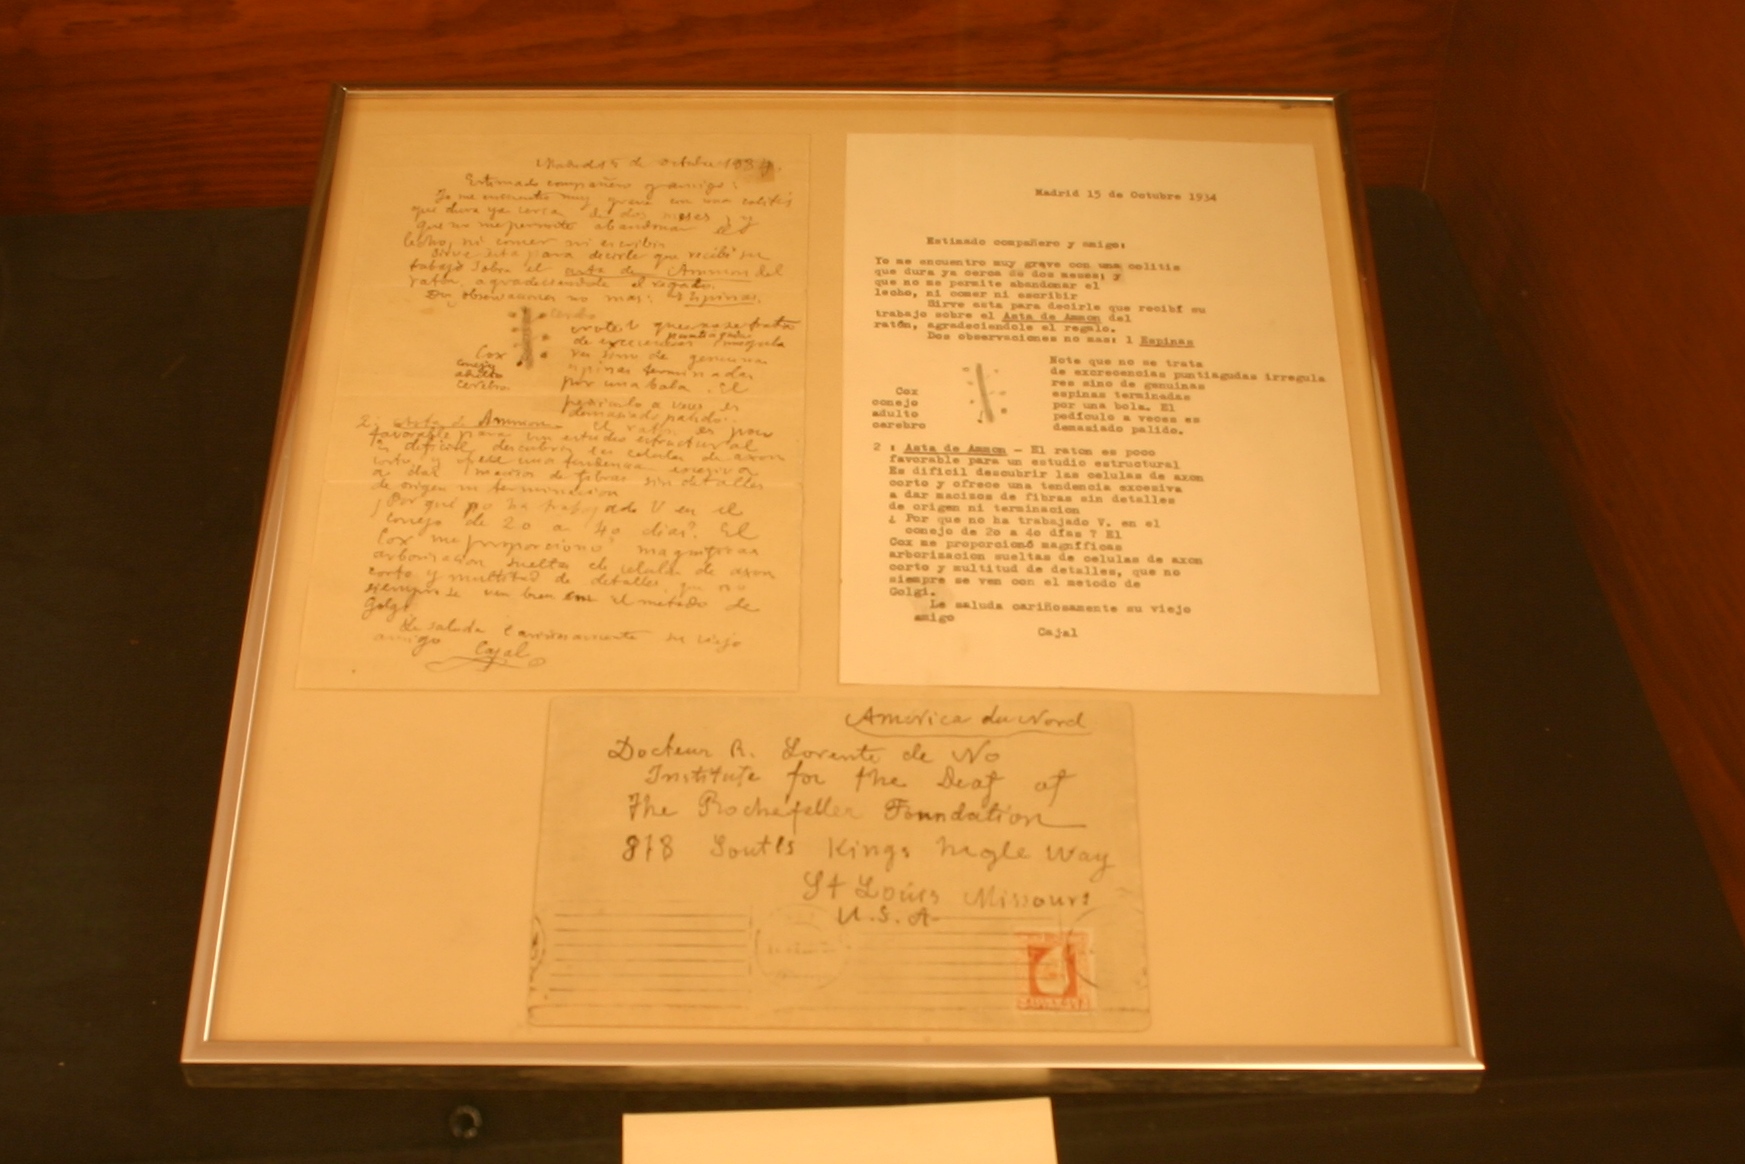 Madrid 15 de Octubre 1934.
Estimado compañero y amigo:
Yo me encuentro muy grave con una colitis
que dura ya cerca de dos meses, y
que no me permite abandonar el
lecho, ni comer ni escribir
Sirve esta para decirle que recibí su
trabajo sobre el asta de Ammon del
raton, agradeciendole el regalo.
Dos observaciones no mas: 1 Espinas.
Note V que no se trata
de excrecencias puntiagudas irregula
res sino de genuinas
espinas terminadas
por una bola. El
pediculo a veces es
demasiado palido.
Cox
conejo
adulto
cerebro
2. asta de Ammon. El raton es poco
favorable para un estudio estructural
Es dificil descubrir las celulas de axon
corto y ofrece una tendencia excesiva
a dar macizos de fibras sin detalles
de origen ni terminacion
¿Por qué no ha trabajado V en el
conejo de 20 a 40 dias? El
Cox me proporcionó magnificas
arborizacion sueltas de celulas de axon
corto y multitud de detalles, que no
siempre se ven bien con el metodo de
Golgi
Le saluda cariñosamente su viejo
amigo Cajal
Madrid 15 de Octubre 1934
Estimado compañero y amigo:
Yo me encuentro muy grave con una colitis
que dura ya cerca de dos meses; y
que no me permite abandonar el
lecho, ni comer ni escribir
Sirve esta para decirle que recibí su
trabajo sobre el Asta de Amnon del
ratón, agradeciendole el regalo.
Dos observaciones no mas: 1 Espinas
Note que no se trata
de excrecencias puntiagudas irregula
res sino de genuinas
espinas terminadas
por una bola. El
pedículo a veces es
demasiado palido.
Cox
conejo
adulto
cerebro
2 : Asta de Amnon - El raton es poco
favorable para un estudio estructural
Es dificil descubrir las celulas de axon
corto y ofrece una tendencia excesiva
a dar macizos de fibras sin detalles
de origen ni terminacion
¿ Por que no ha trabajado V. en el
conejo de 2o a 4o días ? El
Cox me proporcionó magníficas
arborizacion sueltas de celulas de axon
corto y multitud de detalles, que no
siempre se ven con el metodo de
Golgi.
Le saluda cariñosamente su viejo
amigo
Cajal
America du Nord
Docteur R. Lorente de No
Institute for the Deaf of
The Rochefeller Foundation
818 South Kings higle Way
St Louis Missouri
U.S.A-